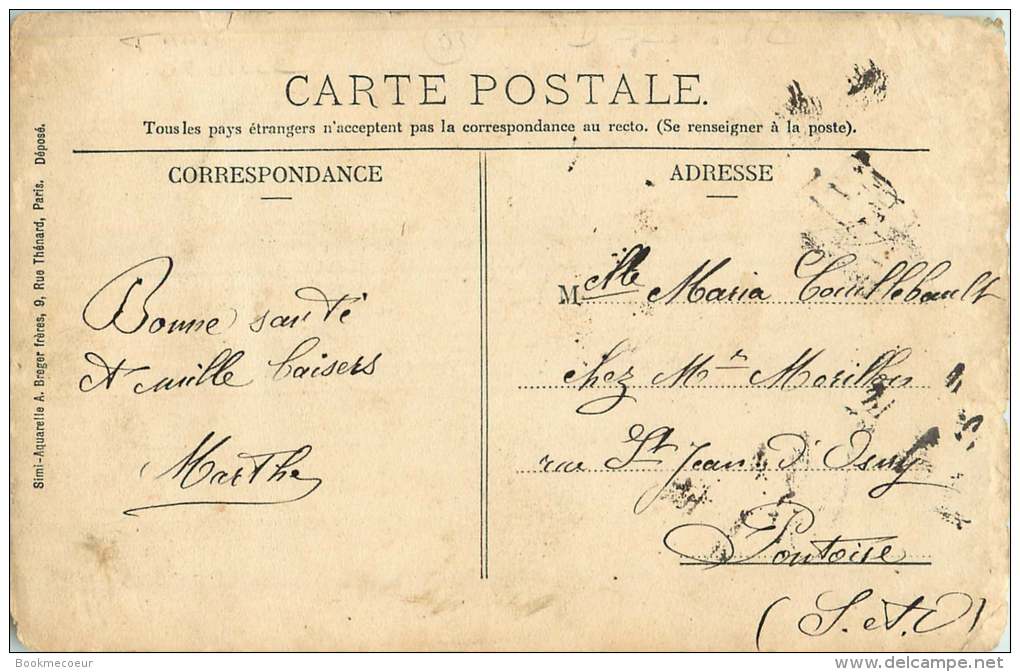 CARTE POSTALE.
Tous les pays étrangers n'acceptent pas la correspondance au recto. (Se renseigner à la poste).
CORRESPONDANCE
ADRESSE
Simi-Aquarelle A. Breger frères, 9, Rue Thénard, Paris. Déposé.
Bonne santé
et mille baisers
Marthe
Melle Maria
chez Mr Morillon
rue St Jean d'Osny
Pontoise
(S. et O)
Bookmecoeur
http://www.delcampe.net